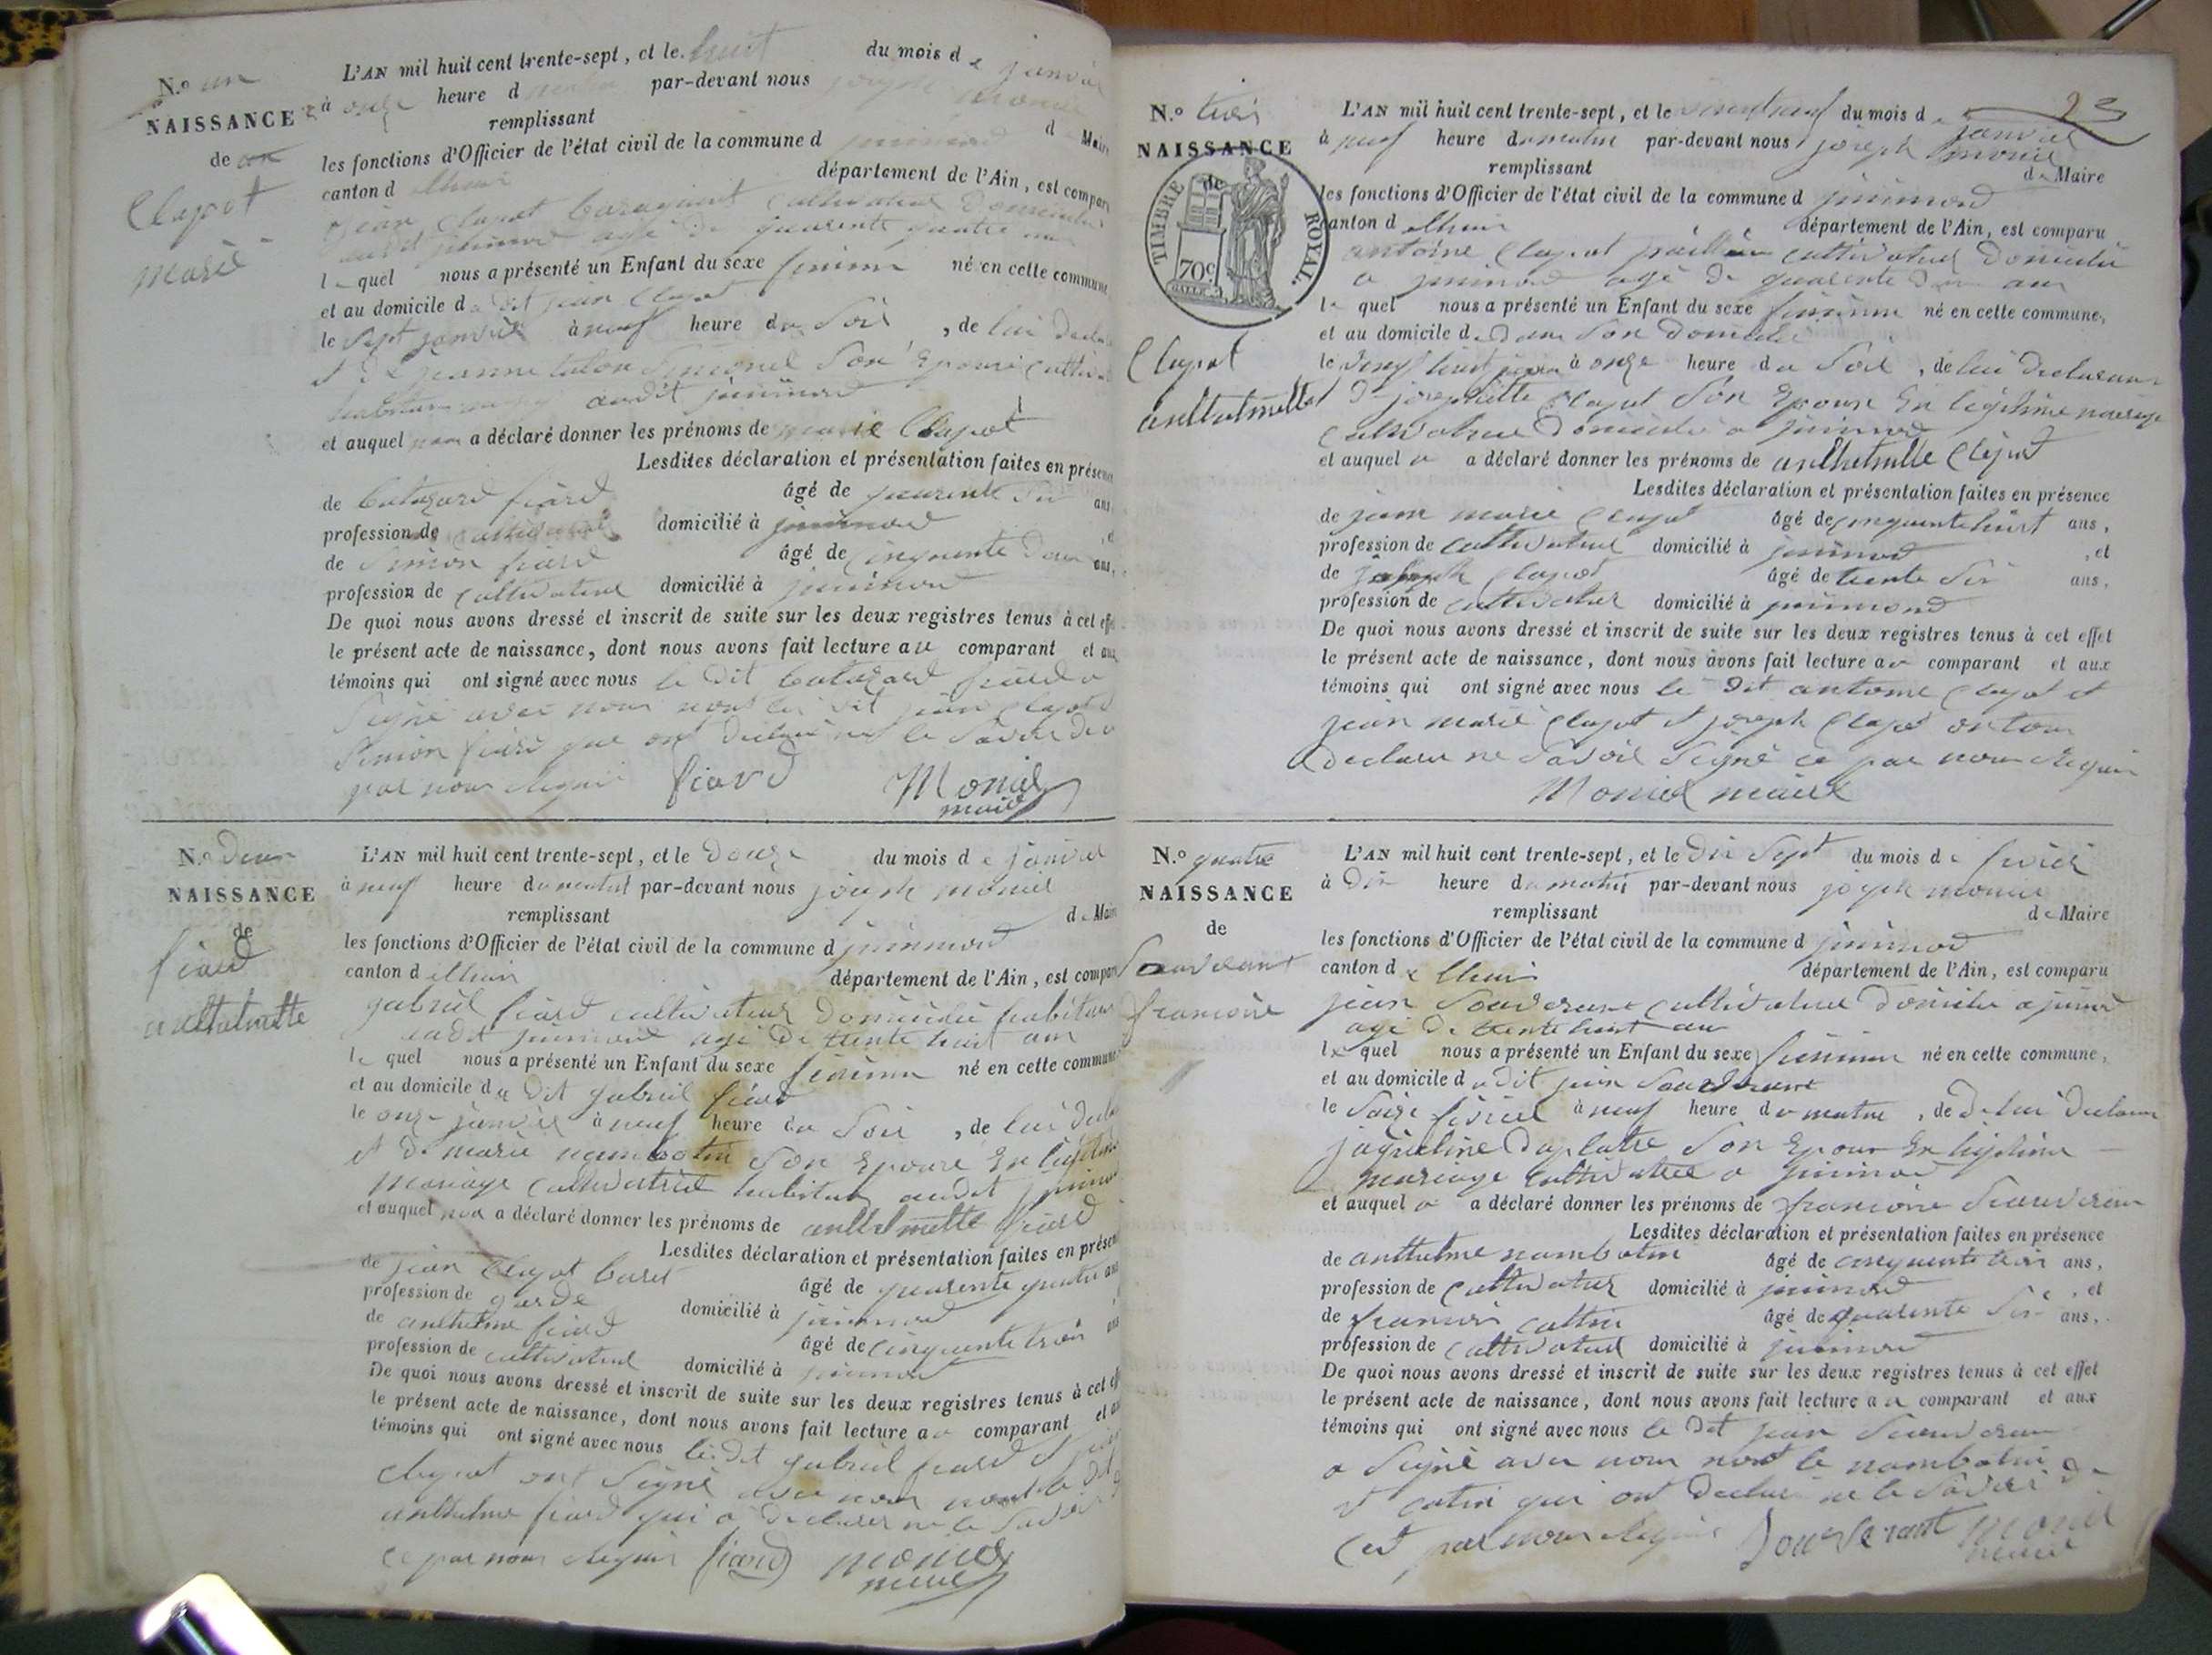 N.o un
NAISSANCE
de
Clapot
marie
L'AN mil huit cent trente-sept, et le huit du mois de janvier
à onze heure d par-devant nous
remplissant d Maire
les fonctions d'Officier de l'état civil de la commune d
canton d lhuis département de l'Ain, est compar
jean Clapot cultivateur domicilié
audit age de quarente quatre ans
le quel nous a présenté un Enfant du sexe né en cette commune
et au domicile du dit jean Clapot
le sept janvier à neuf heure du Soir, de lui decla
et de jeanne Son Epouse cultiva
audit
et auquel a déclaré donner les prénoms de marie Clapot
Lesdites déclaration et présentation faites en présence
de fiard âgé de quarente six ans
profession de cultivateur domicilié à
de Simon fiard âgé de cinquente deux ans,
profession de cultivateur domicilié à
De quoi nous avons dressé et inscrit de suite sur les deux registres tenus à cet effe
le présent acte de naissance, dont nous avons fait lecture au comparant et aux
témoins qui ont signé avec nous le dit fiard a
Signé avec nous non les dit jean Clapot
Simon fiard que ont declaré ne le Savoir de
par nous Requis fiard Monier
maire
N.o deux
NAISSANCE
de
fiard
anthelmette
L'AN mil huit cent trente-sept, et le douze du mois de janvier
à neuf heure du matin par-devant nous joseph monier
remplissant de Maire
les fonctions d'Officier de l'état civil de la commune d
canton d lhuis département de l'Ain, est compar
gabriel fiard cultivateur domicilié habitant
audit age de trente huit ans
le quel nous a présenté un Enfant du sexe né en cette commune
et au domicile du dit gabriel fiard
le onze janvier à neuf heure du Soir, de lui decla
et de marie nambotin Son Epouse En legitime
mariage cultivatrice habitant audit
et auquel a déclaré donner les prénoms de anthelmette fiard
Lesdites déclaration et présentation faites en présen
de jean Clapot âgé de quarente quatre ans
profession de garde domicilié à
de anthelme fiard âgé de cinquente trois ans
profession de cultivateur domicilié à
De quoi nous avons dressé et inscrit de suite sur les deux registres tenus à cet eff
le présent acte de naissance, dont nous avons fait lecture au comparant et au
témoins qui ont signé avec nous le dit gabriel fiard et jean
Clapot ont Signé avec nous non le dit
anthelme fiard qui a declarer ne le Savoir
ce par nous Requis fiard monier
maire
23
N.o trois
NAISSANCE
de
TIMBRE ROYAL.
70c
Clapot
anthelmette
L'AN mil huit cent trente-sept, et le vingt neuf du mois de janvier
à neuf heure du matin par-devant nous joseph monier
remplissant de Maire
les fonctions d'Officier de l'état civil de la commune d
canton d lhuis département de l'Ain, est comparu
antoine Clapot cultivateur domicilié
a age de quarente deux ans
le quel nous a présenté un Enfant du sexe né en cette commune,
et au domicile de dans Son domicile
le vingt huit à onze heure du Soir, de lui declarant
et josephette Clapot Son Epouse En legitime mariage
cultivatrice domicilié a
et auquel a a déclaré donner les prénoms de anthelmette Clapot
Lesdites déclaration et présentation faites en présence
de jean marie Clapot âgé de cinquente huit ans,
profession de cultivateur domicilié à, et
de joseph Clapot âgé de trente Six ans,
profession de cultivateur domicilié à
De quoi nous avons dressé et inscrit de suite sur les deux registres tenus à cet effet
le présent acte de naissance, dont nous avons fait lecture au comparant et aux
témoins qui ont signé avec nous le dit antoine Clapot et
jean marie Clapot et joseph Clapot on tous
declaré ne Savoir Signé ce par nous Requis
Monier maire
N.o quatre
NAISSANCE
de
Souverant
francoise
L'AN mil huit cent trente-sept, et le dix Sept du mois de
à dix heure du matin par-devant nous joseph monier
remplissant de Maire
les fonctions d'Officier de l'état civil de la commune d
canton de lhuis département de l'Ain, est comparu
jean Souverant cultivateur domicilié a
age de trente huit ans
le quel nous a présenté un Enfant du sexe né en cette commune,
et au domicile du dit jean Souverant
le Seize à neuf heure du matin, de de lui declarant
jaqueline Son Epouse En legitime
mariage cultivatrice a
et auquel a a déclaré donner les prénoms de francoise Souverant
Lesdites déclaration et présentation faites en présence
de anthelme nambotin âgé de cinquente trois ans,
profession de cultivateur domicilié à, et
de francois cattin âgé de quarente Six ans,
profession de cultivateur domicilié à
De quoi nous avons dressé et inscrit de suite sur les deux registres tenus à cet effet
le présent acte de naissance, dont nous avons fait lecture au comparant et aux
témoins qui ont signé avec nous le dit jean Souverant
a Signé avec nous non le nambotin
et catin qui ont declaré ne le Savoir de
Cet par nous Requis Souverant monier
maire